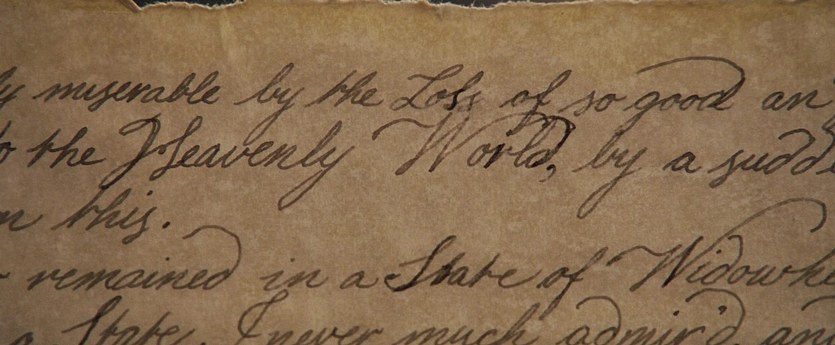 ly miserable by the Loss of so good an
to the Heavenly World, by a sudde
m this.
r remained in a State of Widowh
a State, I never much admir'd, an